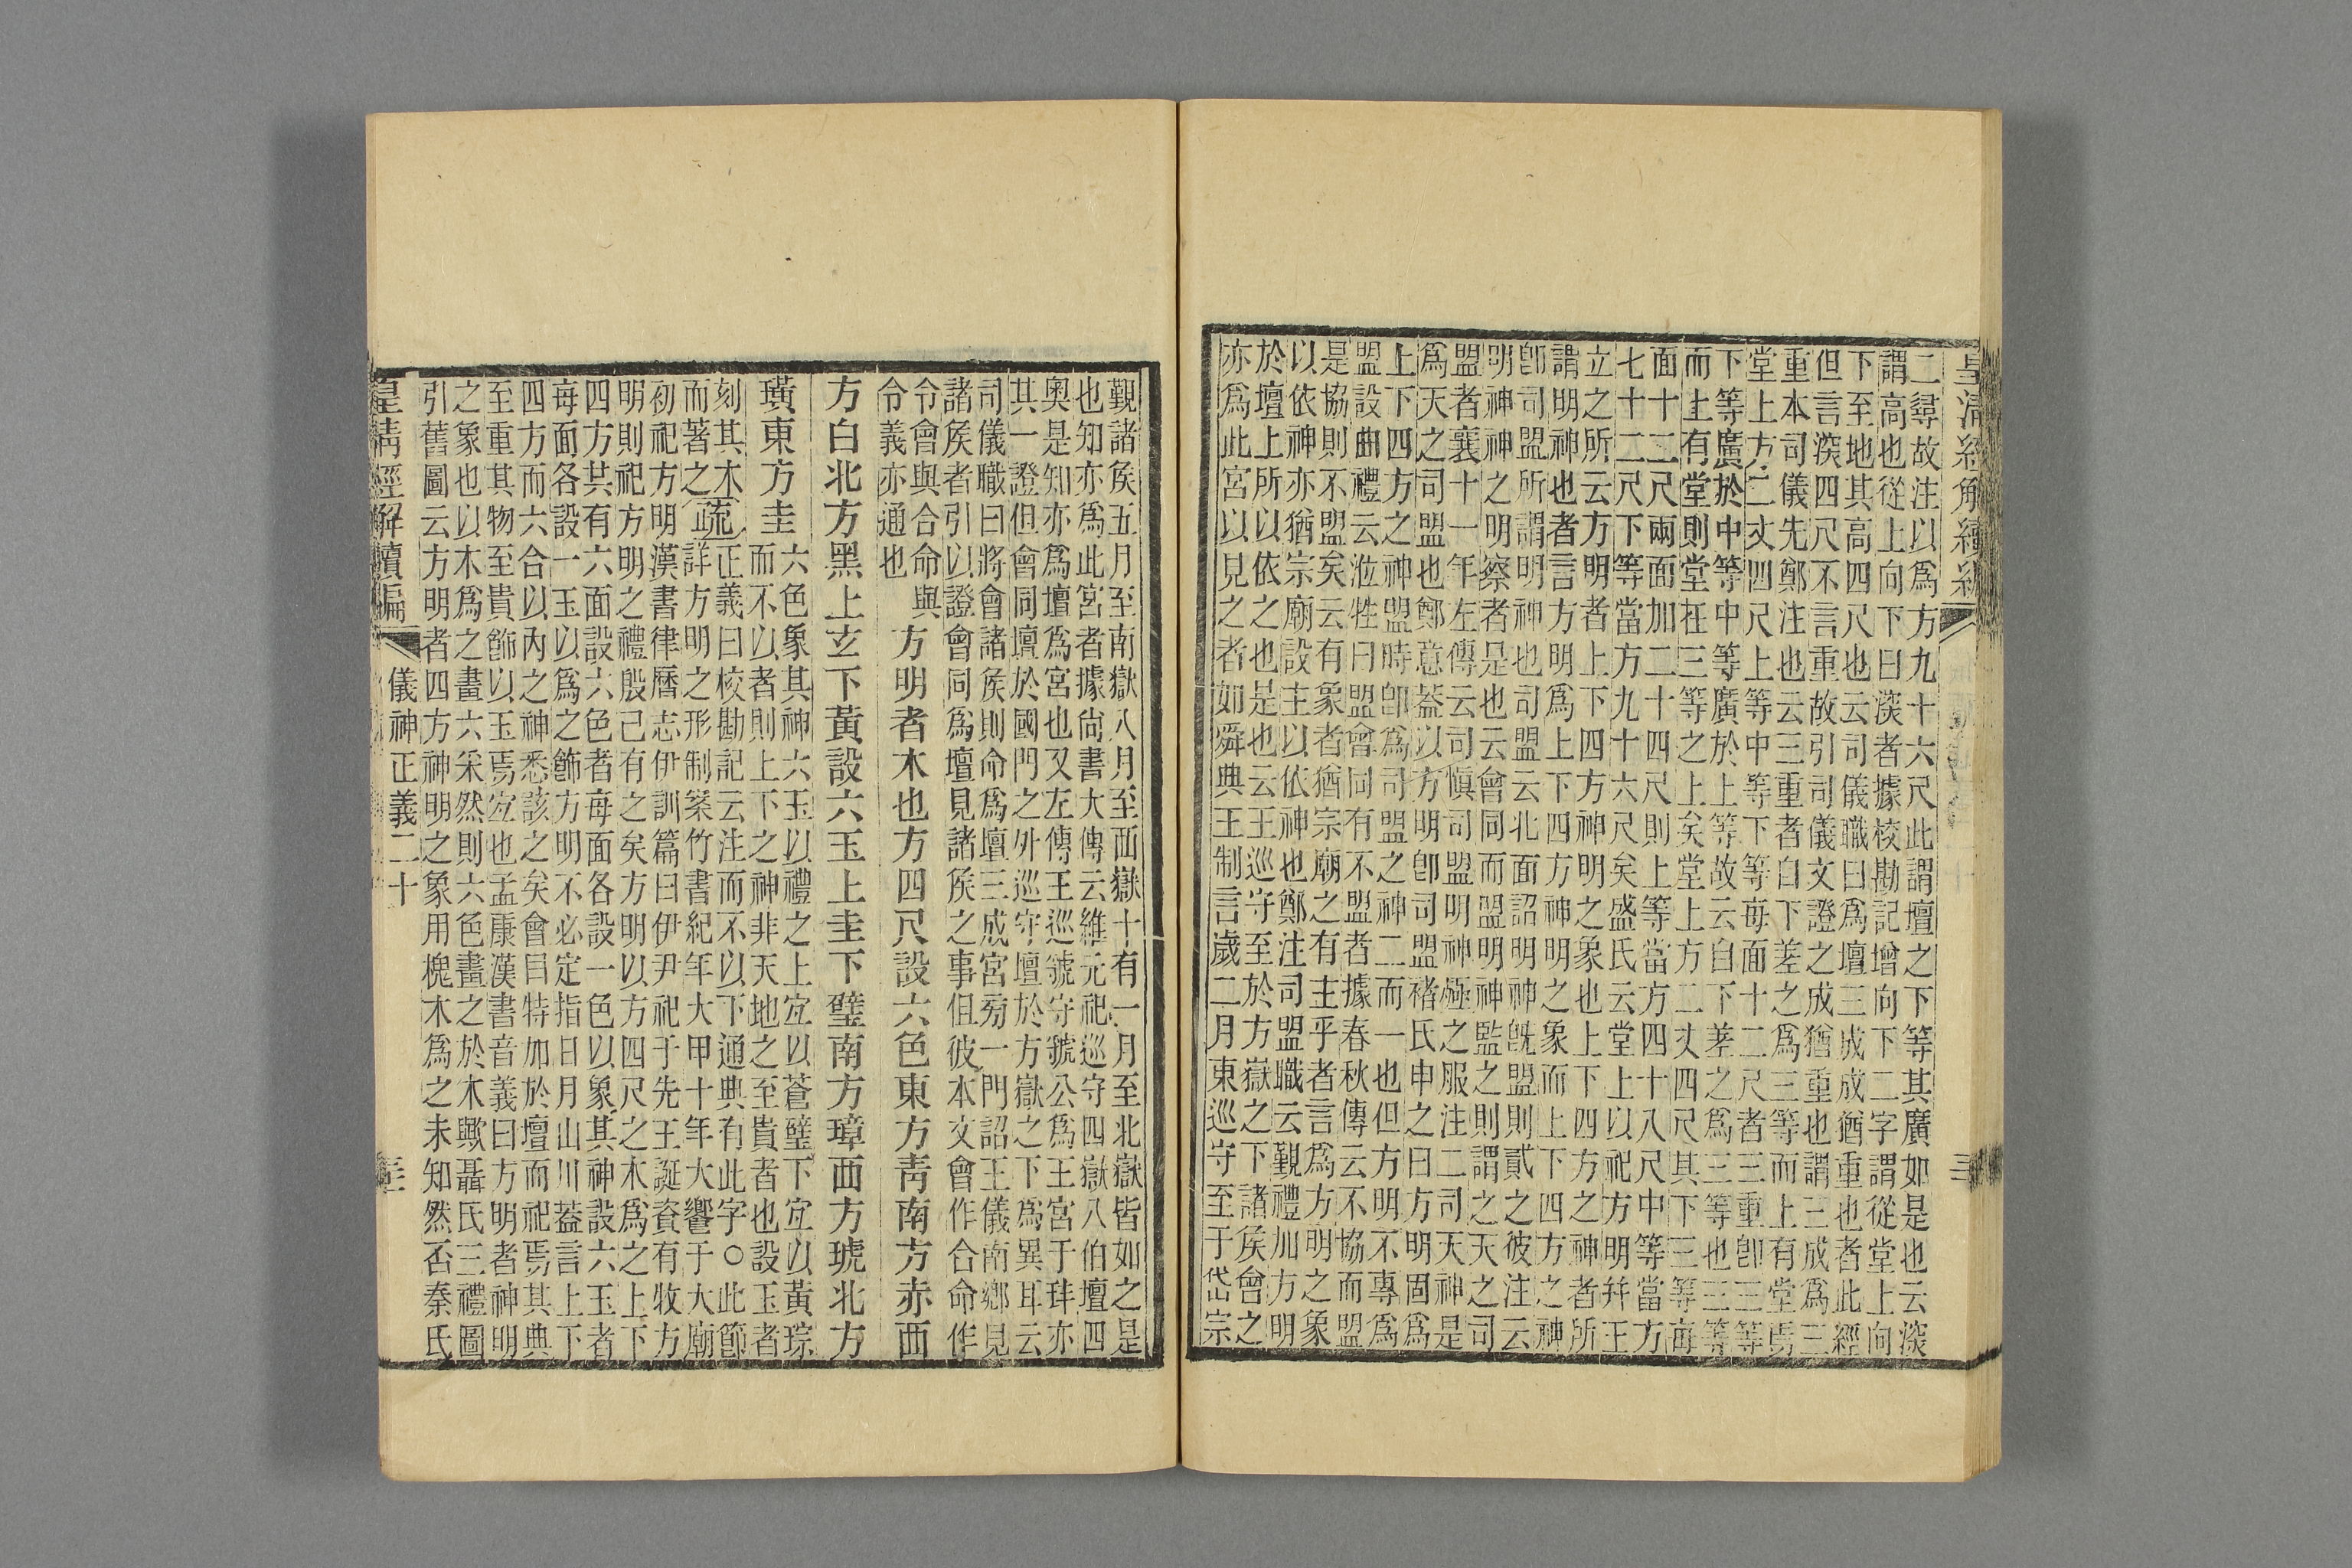 皇清經解續編
二尋故注以爲方九十六尺此謂壇之下等其廣如是也云深
謂高也從上向下曰深者據校勘記增向下二字謂從堂上向
下至地其高四尺也云司儀職曰爲壇三成成猶重也者此經
但言深四尺不言重故引司儀文證之成猶重也謂三成爲三
重本司儀先鄭注也云三重者自下差之爲三等而上有堂焉
堂上方二丈四尺上等中等下等每面十二尺者三重卽三等
下等廣於中等中等廣於上等故云自下差之爲三等也三等
而上有堂則堂在三等之上矣堂上方二丈四尺其下三等每
面十二尺兩面加二十四尺則上等當方四十八尺中等當方
七十二尺下等當方九十六尺矣盛氏云堂上以祀方明幷王
立之所云方明者上下四方神明之象也上下四方之神者所
謂明神也者言方明爲上下四方神明之象而上下四方之神
卽司盟所謂明神也司盟云北面詔明神旣盟則貳之彼注云
明神神之明察者是也云會同而盟明神監之則謂之天之司
盟者襄十一年左傳云司愼司盟明神殛之服注二司天神是
爲天之司盟也鄭意葢以方明卽司盟褚氏申之曰方明固爲
上下四方之神盟時卽爲司盟之神二而一也但方明不專爲
盟設曲禮云涖牲曰盟會同有不盟者據春秋傳云不協而盟
是協則不盟矣云有象者猶宗廟之有主乎者言爲方明之象
以依神亦猶宗廟設主以依神也鄭注司盟職云覲禮加方明
於壇上所以依之也是也云王巡守至於方嶽之下諸侯會之
亦爲此宮以見之者如舜典王制言歲二月東巡守至于岱宗
覲諸侯五月至南嶽八月至西嶽十有一月至北嶽皆如之是
也知亦爲此宮者據尙書大傳云維元祀巡守四嶽八伯壇四
奧是知亦爲壇爲宮也又左傳王巡虢守虢公爲王宮于玤亦
其一證但會同壇於國門之外巡守壇於方嶽之下爲異耳云
司儀職曰將會諸侯則命爲壇三成宮㫄一門詔王儀南鄉見
諸侯者引以證會同爲壇見諸侯之事但彼本文會作合命作
令會與合命與
令義亦通也
方明者木也方四尺設六色東方靑南方赤西
方白北方黑上玄下黃設六玉上圭下璧南方璋西方琥北方
璜東方圭
六色象其神六玉以禮之上宜以蒼璧下宜以黃琮
而不以者則上下之神非天地之至貴者也設玉者
刻其木
而著之
疏
正義曰校勘記云注而不以下通典有此字○此節
詳方明之形制案竹書紀年大甲十年大饗于大廟
初祀方明漢書律曆志伊訓篇曰伊尹祀于先王誕資有牧方
明則祀方明之禮殷已有之矣方明以方四尺之木爲之上下
四方其有六面設六色者每面各設一色以象其神設六玉者
每面各設一玉以爲之飾方明不必定指日月山川葢言上下
四方而六合以內之神悉該之矣會同特加於壇而祀焉其典
至重其物至貴飾以玉焉宜也孟康漢書音義曰方明者神明
之象也以木爲之畫六采然則六色畫之於木歟聶氏三禮圖
引舊圖云方明者四方神明之象用槐木爲之未知然否秦氏
皇淸經解續編
儀神正義二十